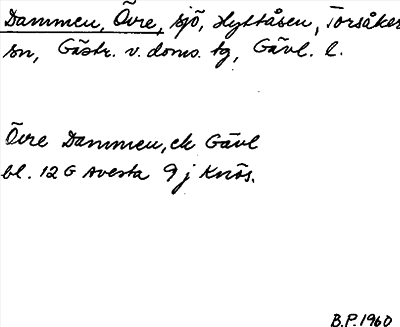 Dammen, Övre, sjö, Hyttåsen, Torsåker
sn, Gästr. v. doms. tg, Gävl. l.
Övre Dammen, ek Gävl
bl. 12 G Avesta 9 j Knös.
B.P. 1960